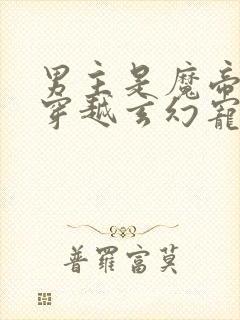 男主是魔帝
穿越玄幻寵
普羅富莫